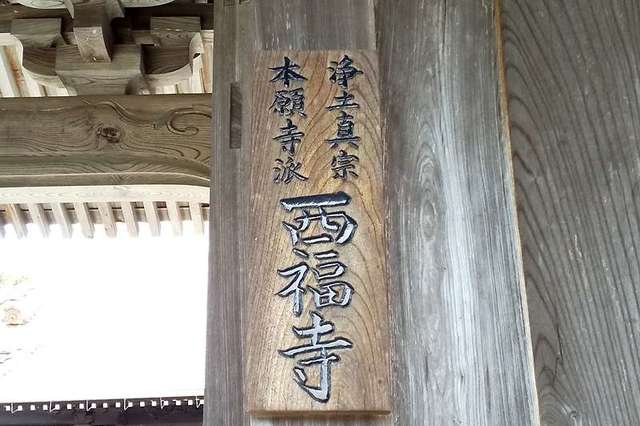 浄土真宗
本願寺派
西福寺